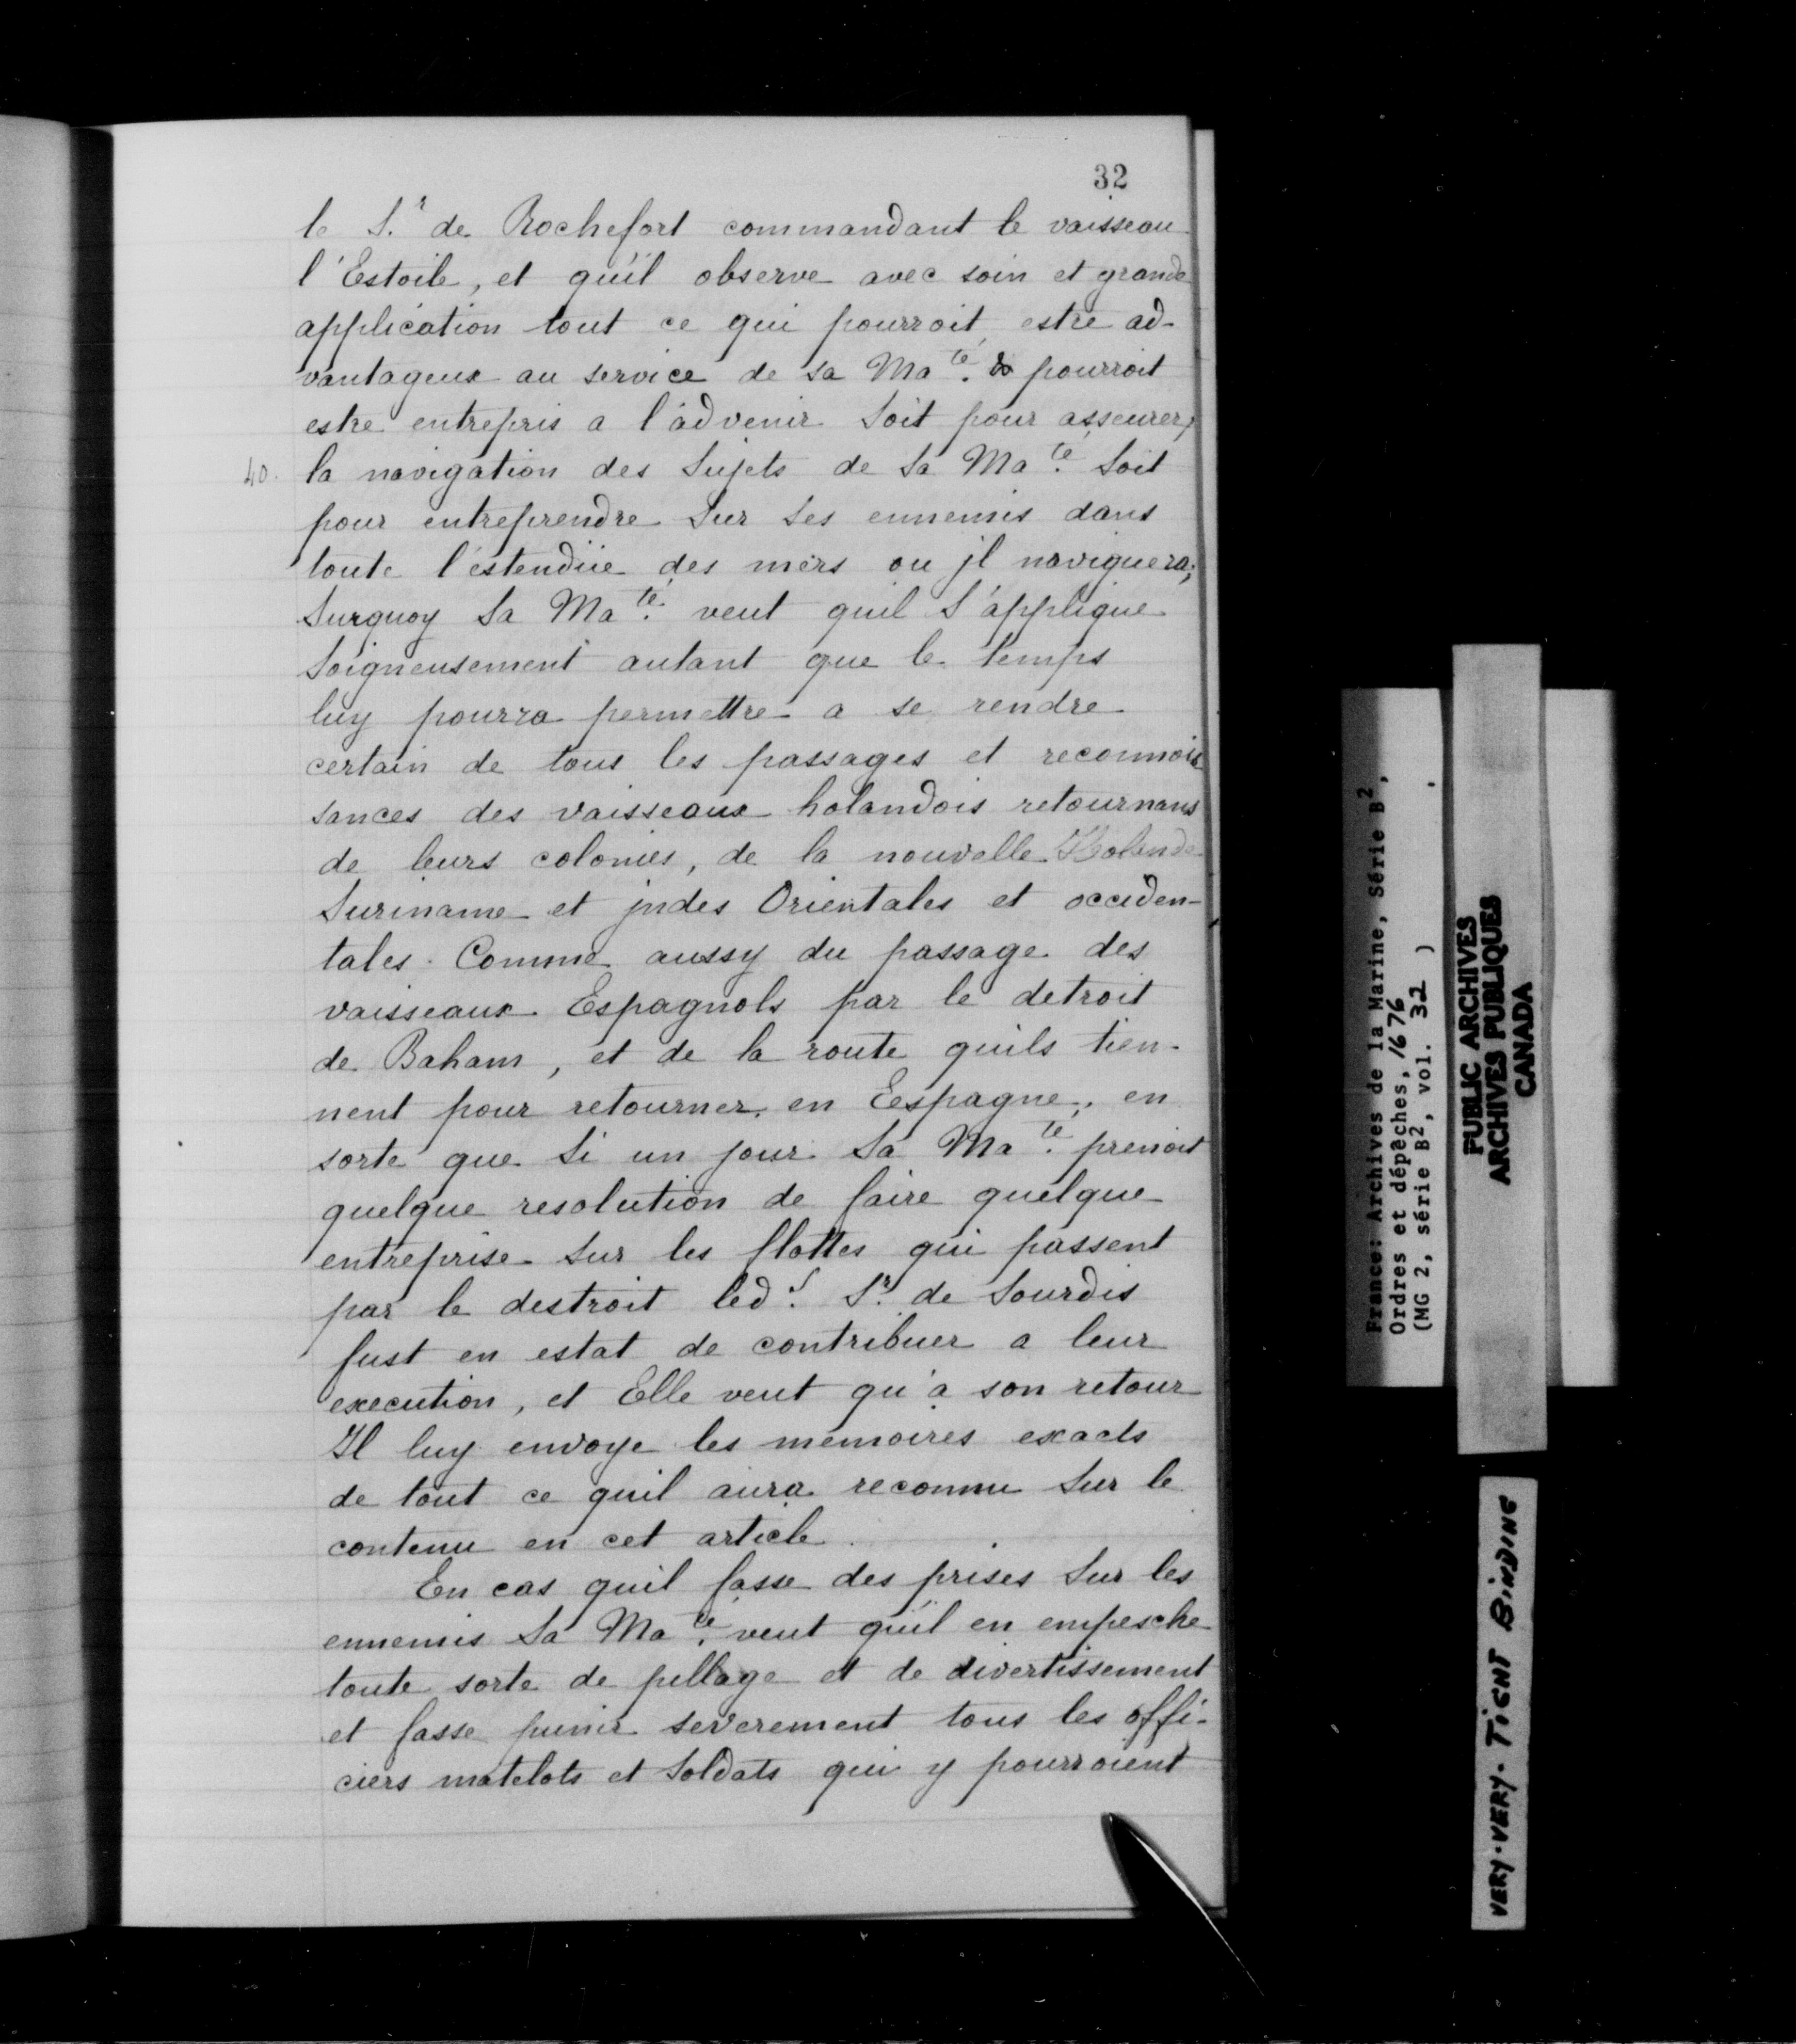 32
le S.r de Rochefort commandant le vaisseau
l'Estoile, et qu'il observe avec soin et grande
application tout ce qui pourroit estre ad-
vantageux au service de sa Ma.té & pourroit
estre entrepris a l'advenir soit pour asseurer,
40. la navigation des sujets de sa Ma.té soit
pour entreprendre sur ses ennemis dans
toute l'estendüe des mers ou jl naviguera;
surquoy sa Ma.té veut quil s'applique
soigneusement autant que le temps
luy pourra permettre a se rendre
certain de tous les passages et reconnois
sances des vaisseaux holandois retournans
de leurs colonies, de la nouvelle Holande
Suriname et jndes Orientales et occiden-
tales. Comme aussy du passage des
vaisseaux Espagnols par le detroit
de Baham, et de la route quils tien-
nent pour retourner en Eespagne, en
sorte que si un jour sa Ma.té prenoit
quelque resolution de faire quelque
entreprise sur les flottes qui passent
par le destroit led.t S.r de Sourdis
fust en estat de contribuer a leur
execution, et Elle veut qu'a son retour
Il luy envoye les memoires exacts
de tout ce quil aura reconnu sur le
contenu en cet article.
En cas quil fasse des prises sur les
ennemis sa Ma.té veut qu'il en empesche
toute sorte de pillage et de divertissement
et fasse punir severement tous les offi-
ciers matelots et soldats qui y pourroient
France: Archives de la Marine, Série B2,
Ordres et dépêches, 1676
(MG 2, série B2, vol. 32 )
PUBLIC ARCHIVES
ARCHIVES PUBLIQUES
CANADA
VERY-VERY-TIGHT BINDING